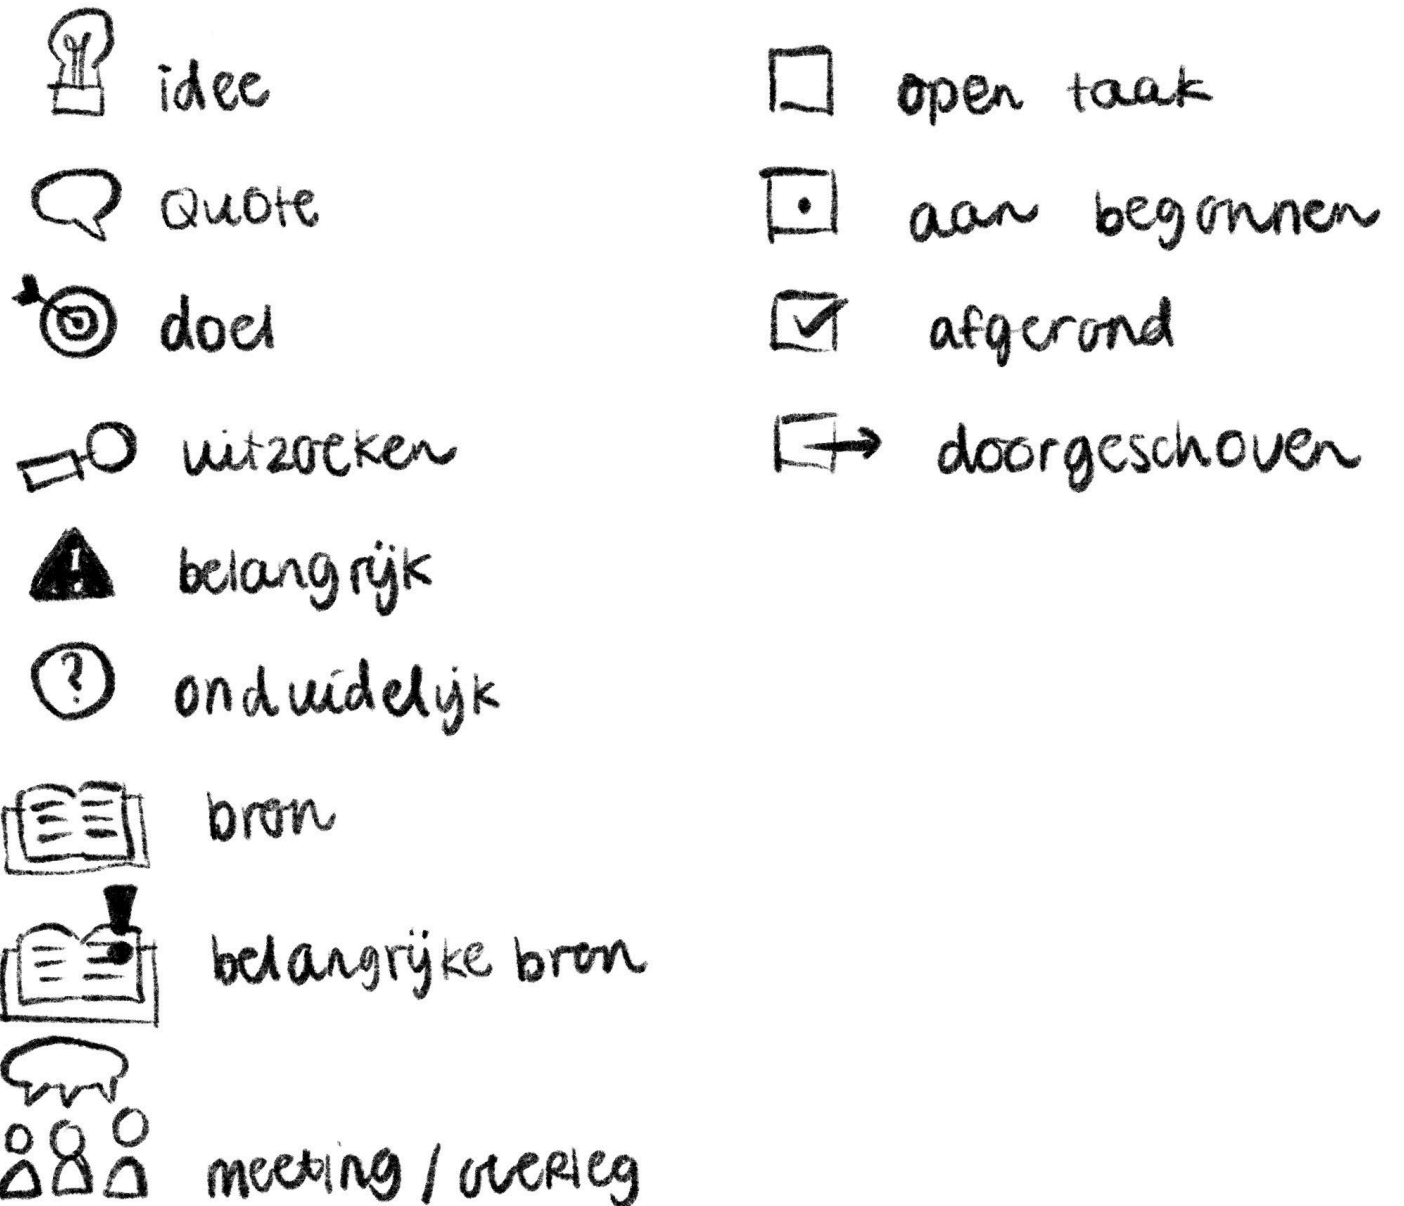 idee
Quote
doel
uitzoeken
!
belangrijk
?
onduidelijk
bron
!
belangrijke bron
meeting / overleg
open taak
aan begonnen
afgerond
doorgeschoven